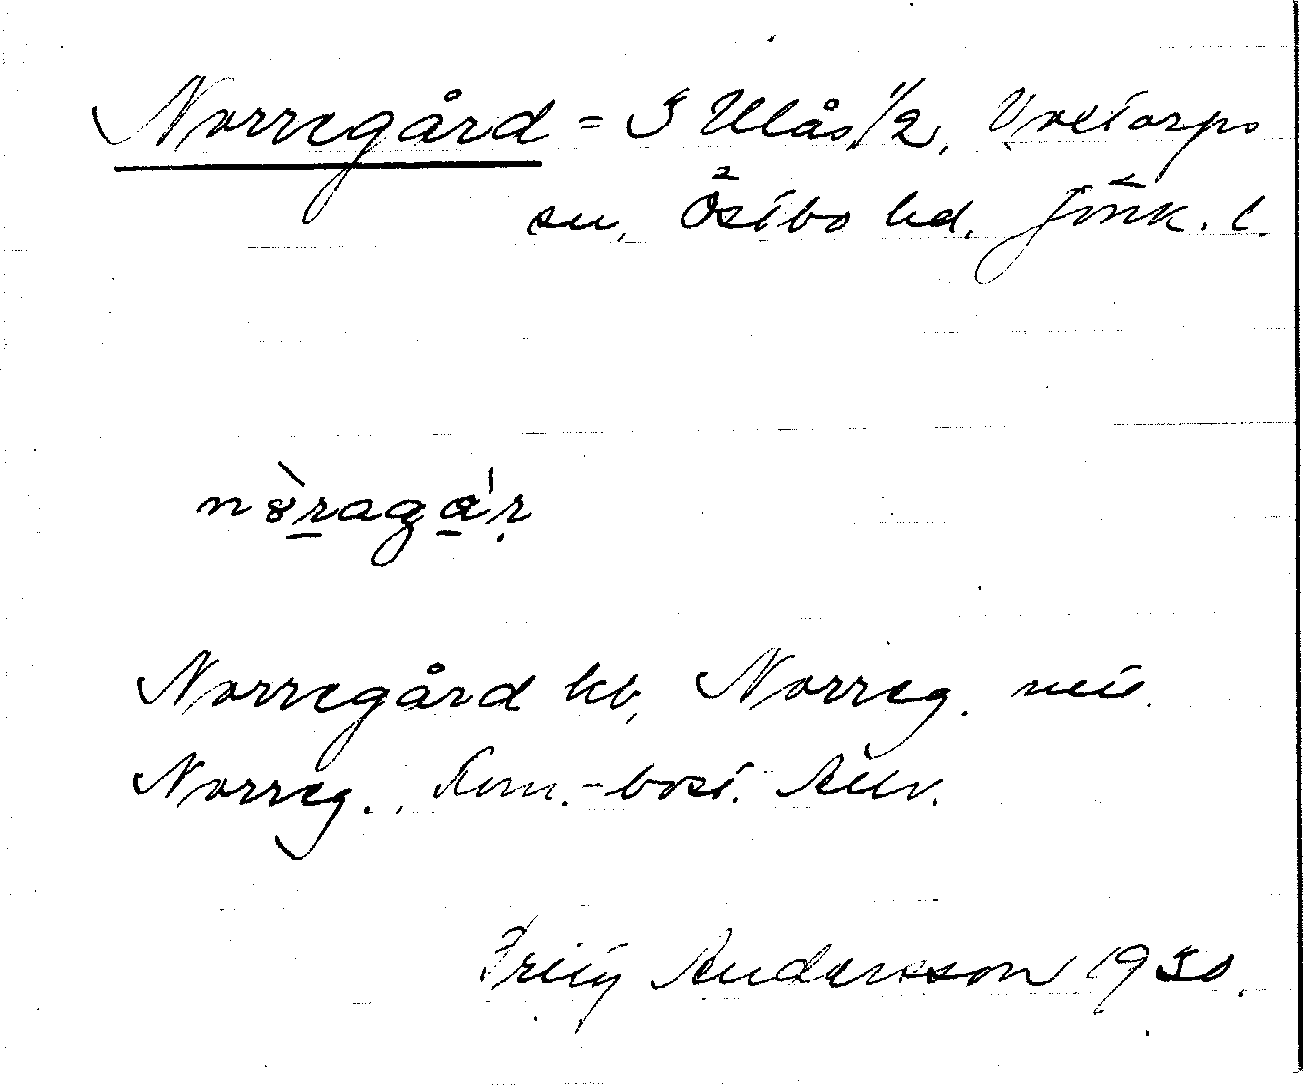 Norregård = S Ulås 1/2, Voxtorps
sn, Östbo hd. Jönk. l.
nɵ̀ragá'r
Norregård kb, Norreg.
Norreg. Kom.-bost. Albr.
Fritz Andersson 1930.